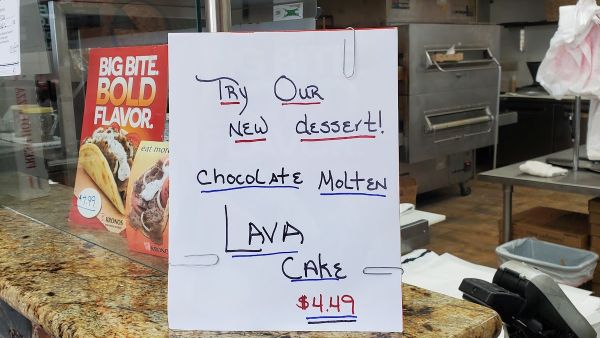 BIG BITE.
BOLD
FLAVOR.
eat more
$7.99
KRONOS
Try Our
New dessert!
Chocolate Molten
Lava
Cake
$4.49